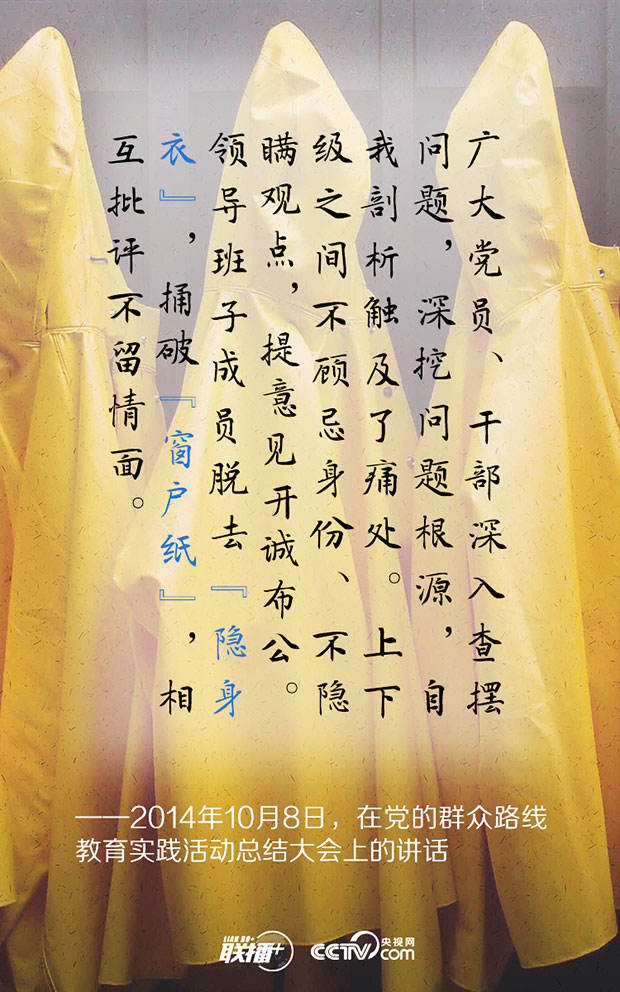 广大党员、干部深入查摆
问题，深挖问题根源，自
我剖析触及了痛处。上下
级之间不顾忌身份、不隐
瞒观点，提意见开诚布公。
领导班子成员脱去『隐身
衣』，捅破『窗户纸』，相
互批评不留情面。
——2014年10月8日，在党的群众路线
教育实践活动总结大会上的讲话
LIAN BO+
联播+
CCTV.com 央视网